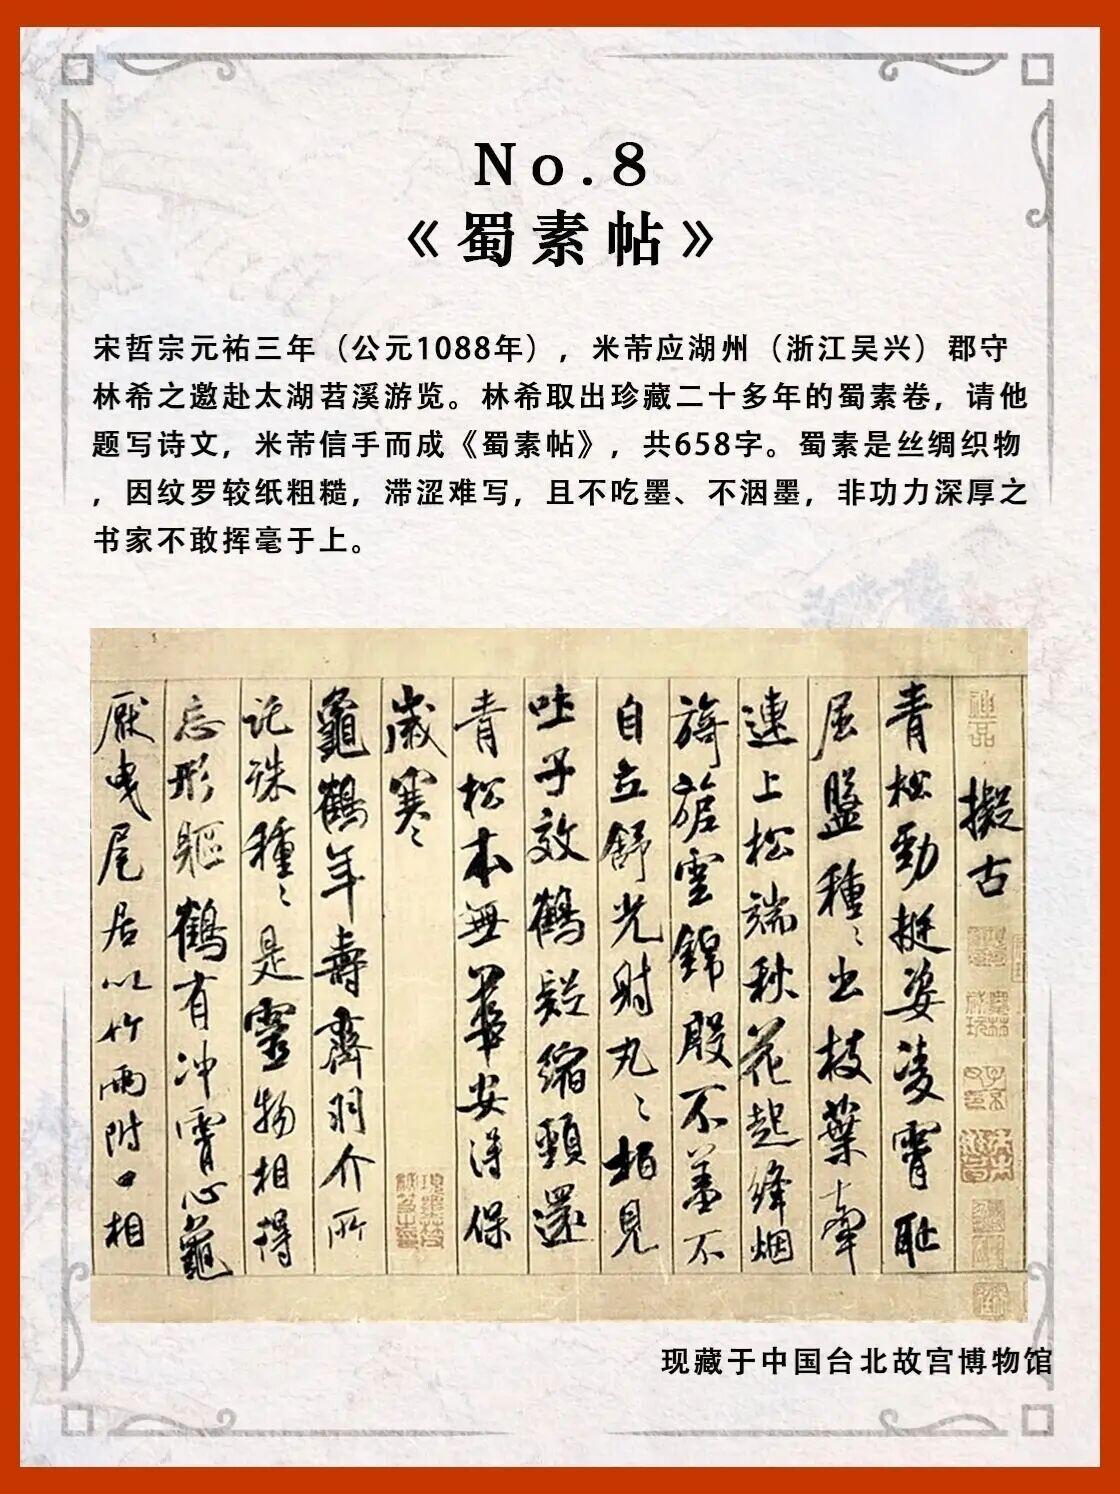 No.8
《蜀素帖》
宋哲宗元祐三年（公元1088年），米芾应湖州（浙江吴兴）郡守
林希之邀赴太湖苕溪游览。林希取出珍藏二十多年的蜀素卷，请他
题写诗文，米芾信手而成《蜀素帖》，共658字。蜀素是丝绸织物
，因纹罗较纸粗糙，滞涩难写，且不吃墨、不洇墨，非功力深厚之
书家不敢挥毫于上。
擬古
青松勁挺姿凌霄恥
屈盤種〻出枝葉牽
連上松端秋花起絳烟
旖旎雲錦殷不羞不
自立舒光射丸〻柏見
吐子效鶴疑縮頸還
青松本無華安得保
歲寒〻
龜鶴年壽齊羽介所
託殊種〻是靈物相得
忘形軀鶴有冲霄心龜
厭曳尾居以竹兩附口相
现藏于中国台北故宫博物馆